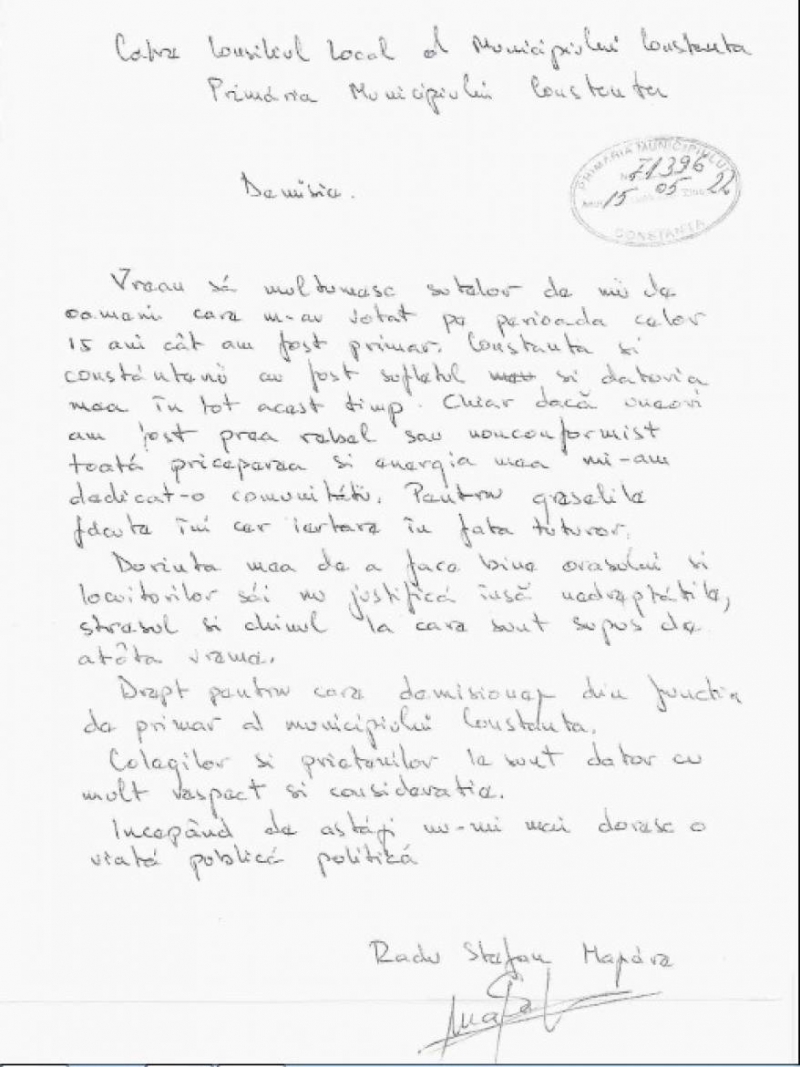 Catre Consiliul Local al Municipiului Constanta
Primăria Municipiului Constanta
PRIMĂRIA MUNICIPIULUI
71396
15 05 22
CONSTANTA
Demisie.
Vreau să multumesc sutelor de mii de
oameni care m-au votat pe perioada celor
15 ani cât am fost primar. Constanta si
constăntenii au fost sufletul si datoria
mea în tot acest timp. Chiar dacă uneori
am fost prea rebel sau nonconformist
toată priceperea si energia mea mi-am
dedicat-o comunitătii. Pentru greselile
făcute îmi cer iertare în fata tuturor.
Dorinta mea de a face bine orasului si
locuitorilor săi nu justifică însă nedreptătile,
stresul si chinul la care sunt supus de
atâta vreme.
Drept pentru care demisionez din functia
de primar al municipiului Constanta.
Colegilor si prietenilor le sunt dator cu
mult respect si consideratie.
Incepând de astăzi nu-mi mai doresc o
viată publică politică
Radu Stefan Mazăre